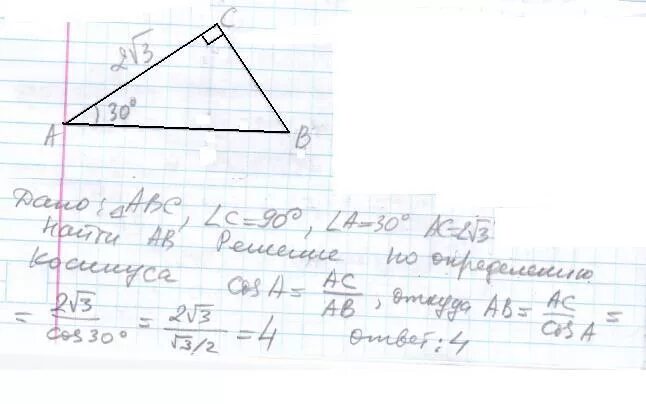 C
2√3
30°
A
B
Дано: △ABC, ∠C=90°, ∠A=30° AC=2√3
Найти AB Решение по определению
косинуса cos A = AC/AB, откуда AB = AC/cos A =
= 2√3/cos 30° = 2√3/√3/2 = 4 ответ: 4